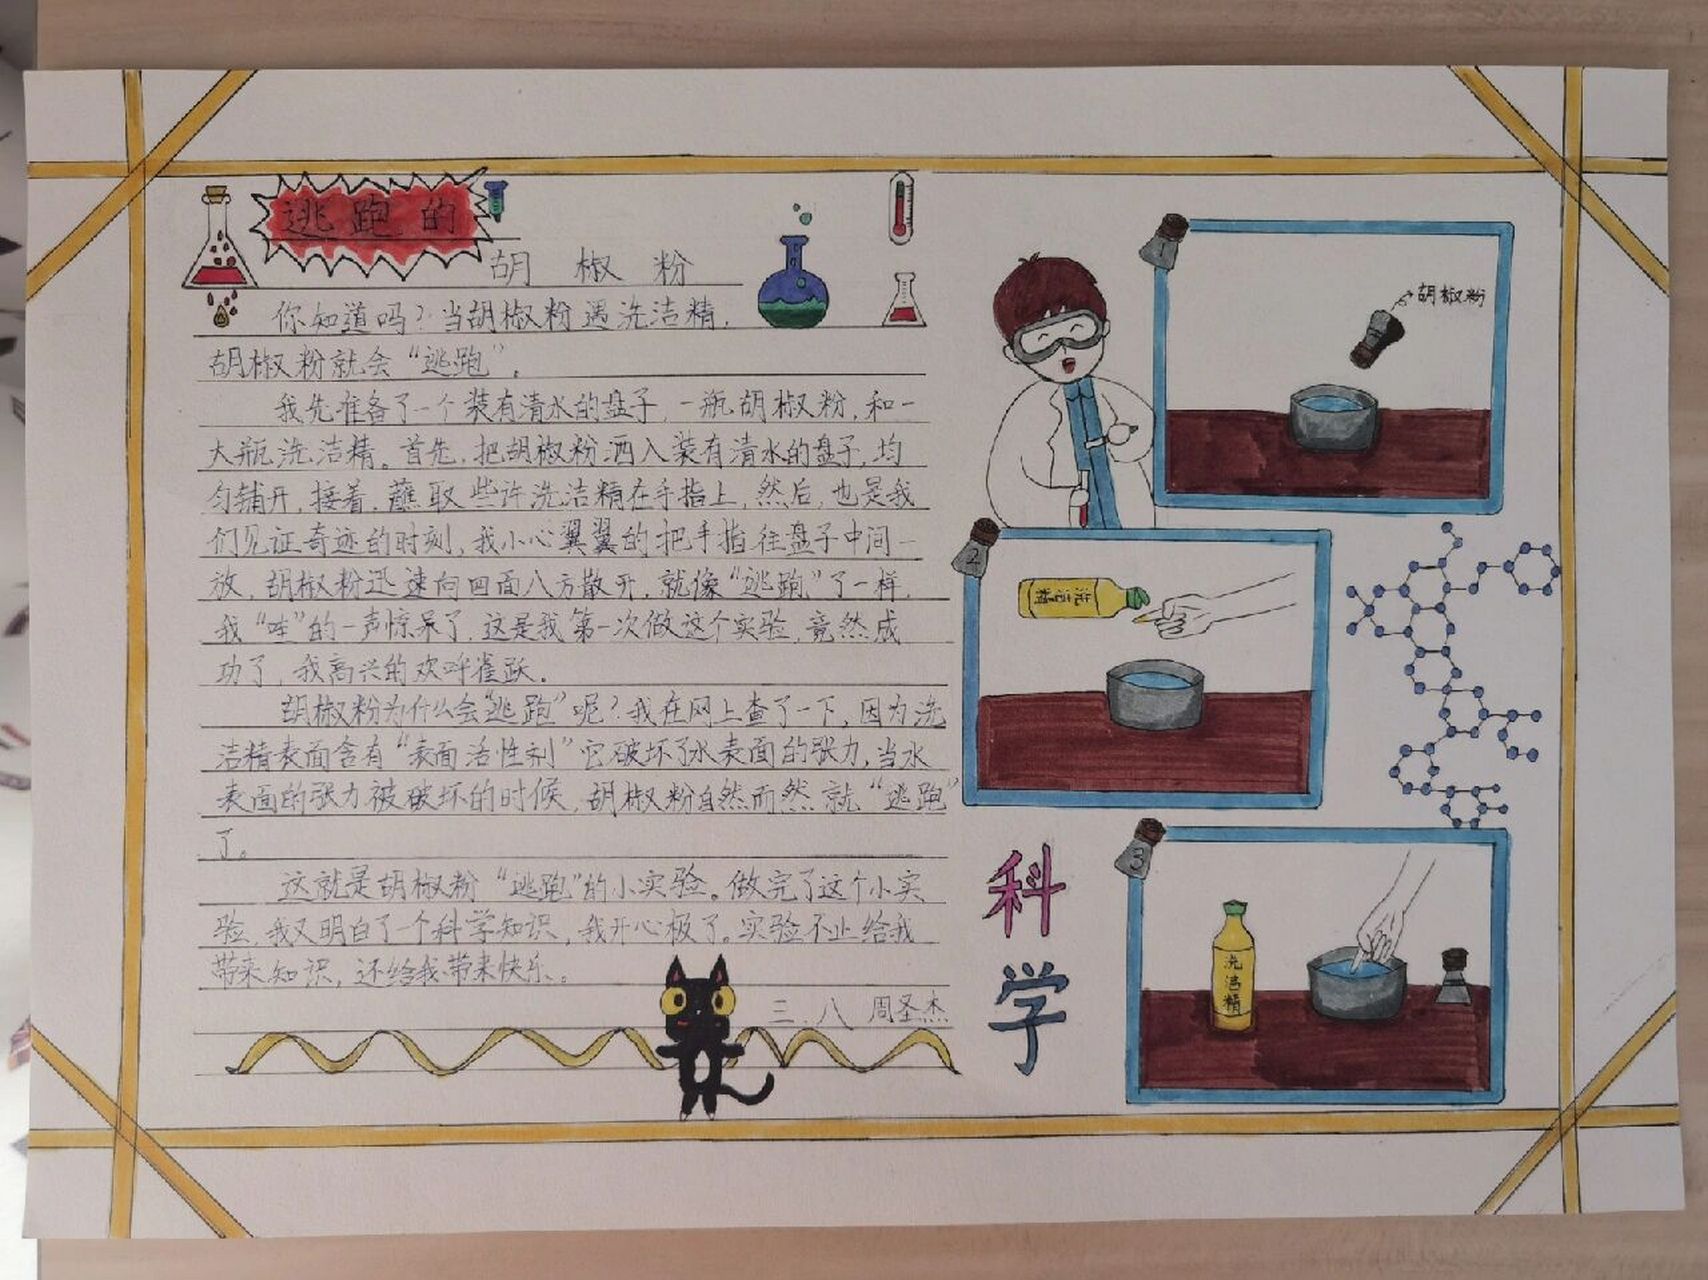 逃跑的
胡椒粉
你知道吗？当胡椒粉遇洗洁精，
胡椒粉就会“逃跑”。
我先准备了一个装有清水的盘子，一瓶胡椒粉，和一
大瓶洗洁精。首先，把胡椒粉洒入装有清水的盘子，均
匀铺开，接着，蘸取些许洗洁精在手指上，然后，也是我
们见证奇迹的时刻，我小心翼翼的把手指往盘子中间一
放，胡椒粉迅速向四面八方散开，就像“逃跑”了一样，
我“哇”的一声惊呆了，这是我第一次做这个实验，竟然成
功了，我高兴的欢呼雀跃。
胡椒粉为什么会“逃跑”呢？我在网上查了一下，因为洗
洁精表面含有“表面活性剂”它破坏了水表面的张力，当水
表面的张力被破坏的时候，胡椒粉自然而然就“逃跑”
了。
这就是胡椒粉“逃跑”的小实验。做完了这个小实
验，我又明白了一个科学知识，我开心极了。实验不止给我
带来知识，还给我带来快乐。
三．八 周圣杰
胡椒粉
2
洗洁精
科
学
3
洗
洁
精